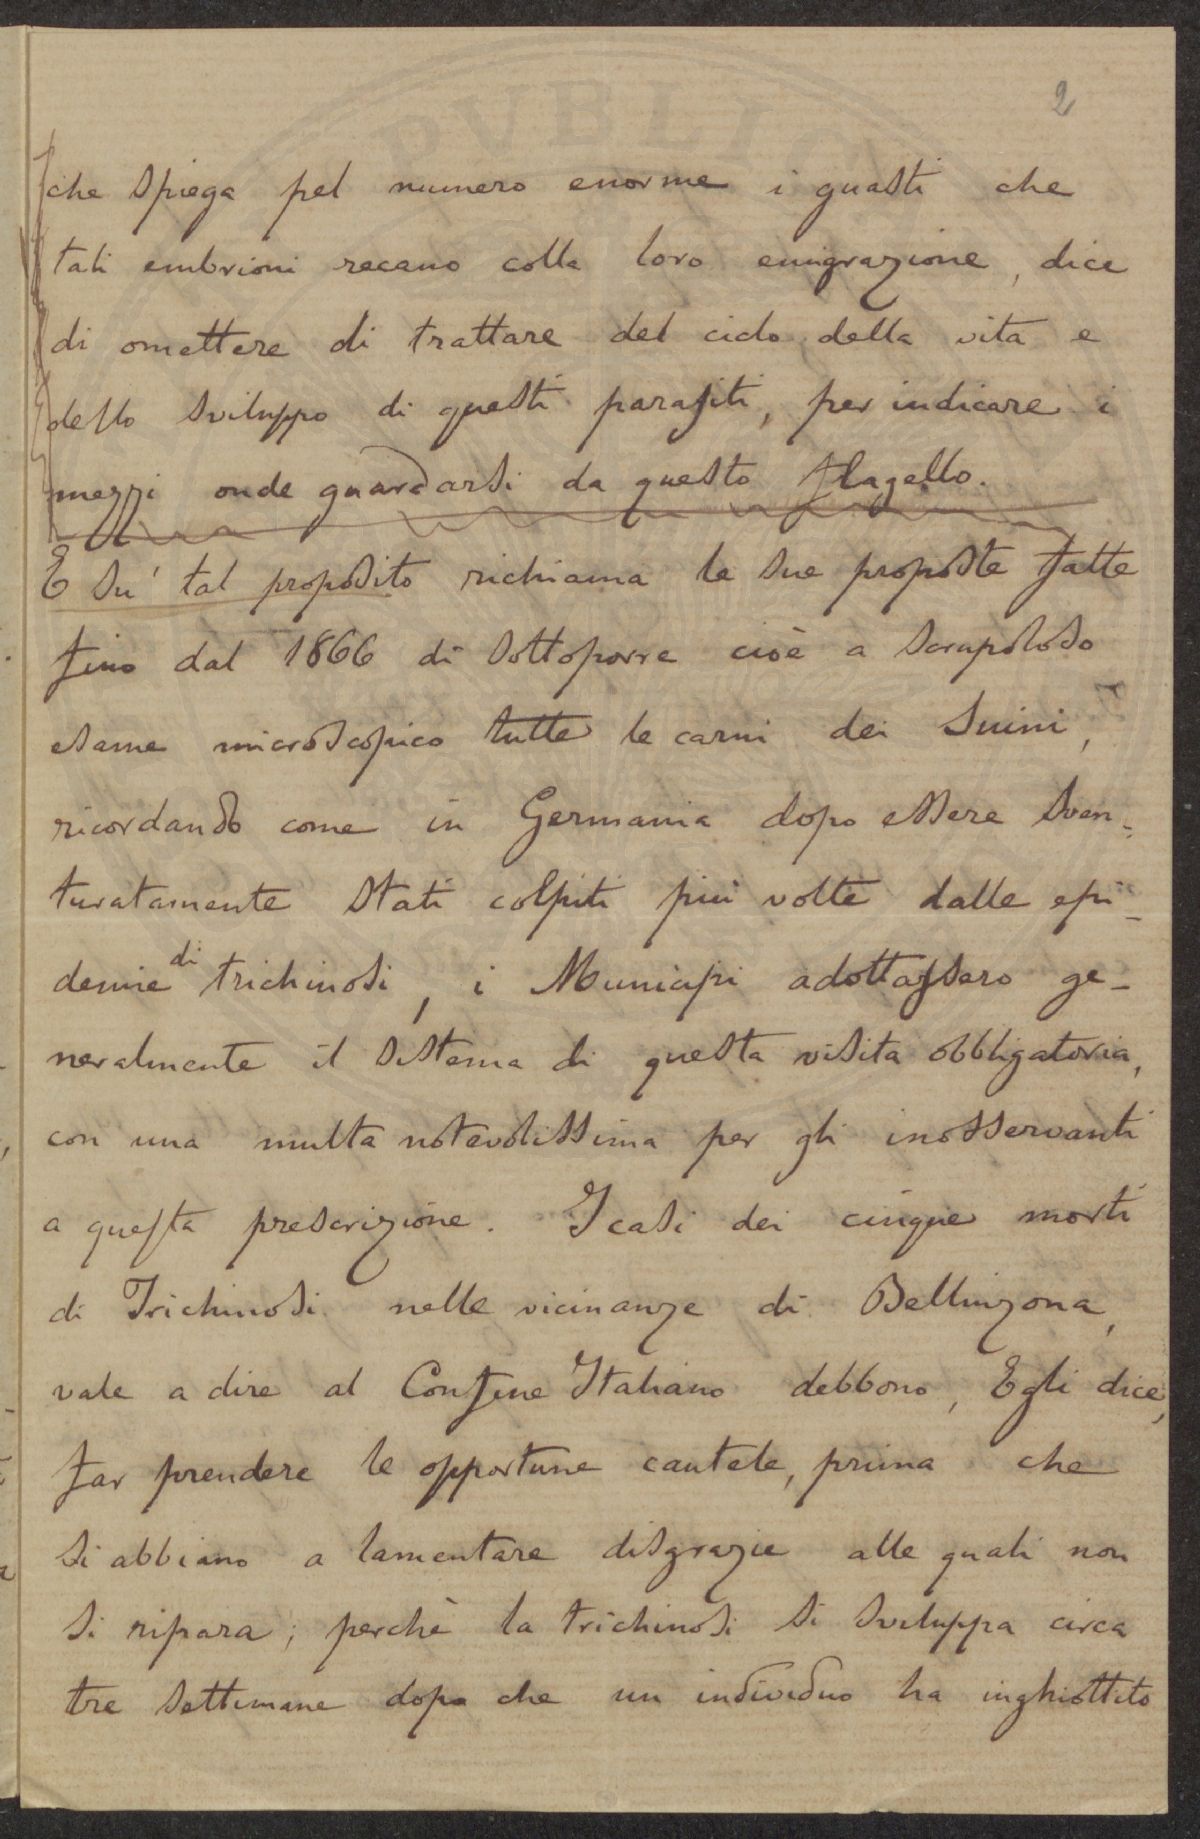 2
che spiega pel numero enorme i guasti che
tali embrioni recano colla loro emigrazione, dice
di omettere di trattare del ciclo della vita e
dello sviluppo di questi parasiti, per indicare i
mezzi onde guardarsi da questo flagello.
E su' tal proposito richiama le sue proposte fatte
fino dal 1866 di sottoporre cioè a scrupoloso
esame microscopico tutte le carni dei Suini,
ricordando come in Germania dopo essere sven-
turatamente stati colpiti più volte dalle epi-
demie di trichinosi, i Municipi adottassero ge-
neralmente il sistema di questa visita obbligatoria,
con una multa notevolissima per gli inosservanti
a questa prescrizione. I casi dei cinque morti
di Trichinosi nelle vicinanze di Bellinzona,
vale a dire al Confine Italiano debbono, Egli dice,
far prendere le opportune cautele, prima che
si abbiano a lamentare disgrazie alle quali non
si ripara; perchè la trichinosi si sviluppa circa
tre settimane dopo che un individuo ha inghiottito